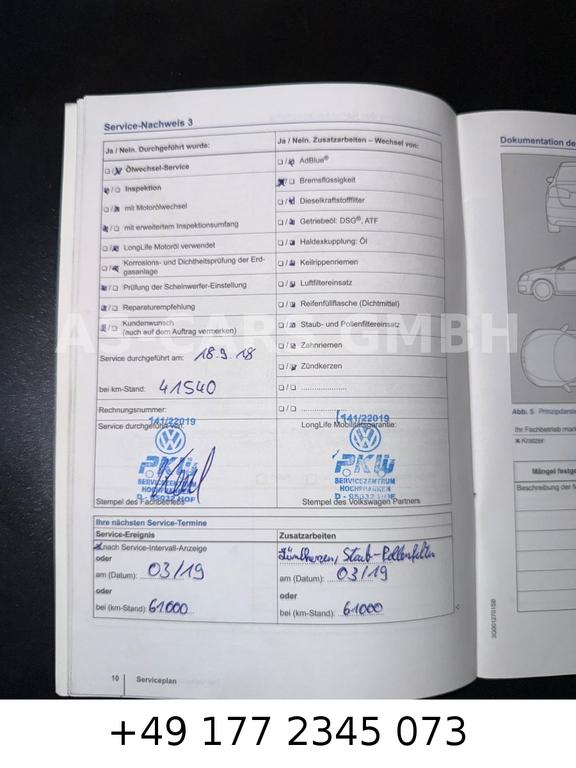 Service-Nachweis 3
Ja / Nein. Durchgeführt wurde:
Ölwechsel-Service
Inspektion
mit Motorölwechsel
mit erweitertem Inspektionsumfang
LongLife Motoröl verwendet
Korrosions- und Dichtheitsprüfung der Erd-
gasanlage
Prüfung der Scheinwerfer-Einstellung
Reparaturempfehlung
Kundenwunsch
(auch auf dem Auftrag vermerken)
Service durchgeführt am: 18.9.18
bei km-Stand: 41540
Rechnungsnummer:
Service durchgeführt von:
141/22019
PKW
SERVICEZENTRUM
HOCHFRANKEN
D - 95032 HOF
Stempel des Fachbetriebs
Ja / Nein. Zusatzarbeiten – Wechsel von:
AdBlue®
Bremsflüssigkeit
Dieselkraftstofffilter
Getriebeöl: DSG®, ATF
Haldexkupplung: Öl
Keilrippenriemen
Luftfiltereinsatz
Reifenfüllflasche (Dichtmittel)
Staub- und Pollenfiltereinsatz
Zahnriemen
Zündkerzen
LongLife Mobilitätsgarantie:
141/22019
PKW
SERVICEZENTRUM
HOCHFRANKEN
D - 95032 HOF
Stempel des Volkswagen Partners
Ihre nächsten Service-Termine
Service-Ereignis
nach Service-Intervall-Anzeige
oder
am (Datum): 03/19
oder
bei (km-Stand): 61000
Zusatzarbeiten
Zündkerzen, Staub-Pollenfilter
am (Datum): 03/19
oder
bei (km-Stand): 61000
10 Serviceplan
Dokumentation de
Abb. 5
Ihr Fachbetrieb
Kratzer
Mängel festge
Beschreibung der M
AS CARS GMBH
+49 177 2345 073